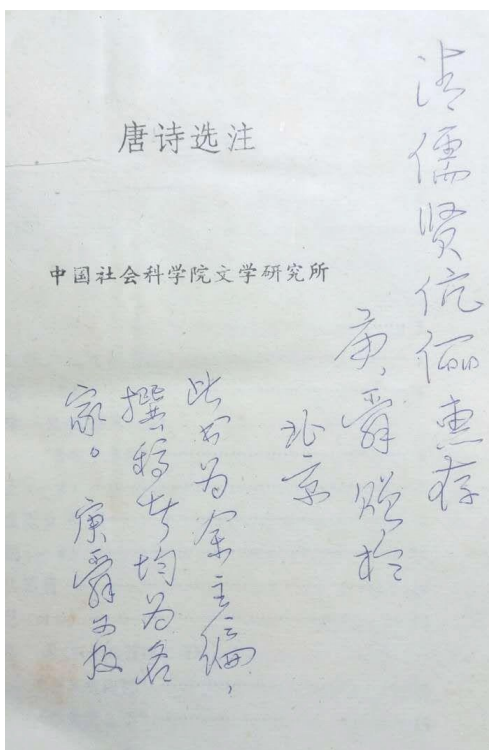 唐诗选注
中国社会科学院文学研究所
儒贤伉俪惠存
庚舜赠于
北京
此书为余主编，
撰稿者均为名
家。庚舜又及